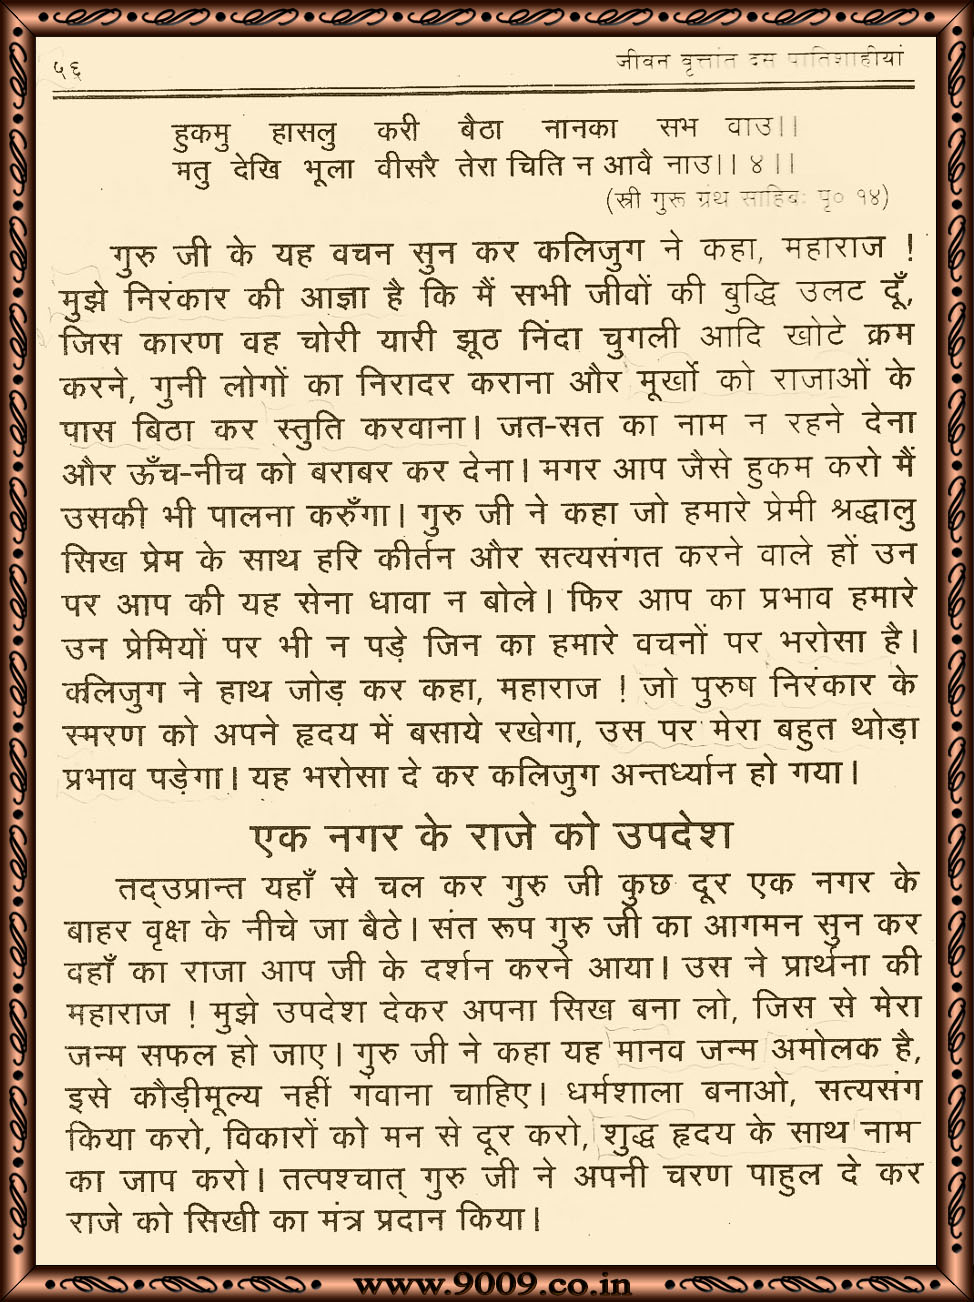 ५६
जीवन वृत्तांत दस पातिशाहीयां
हुकमु हासलु करी बैठा नानका सभ वाउ।।
मतु देखि भूला वीसरै तेरा चिति न आवै नाउ।। ४ ।।
(स्री गुरू ग्रंथ साहिबः पृ० १४)
गुरु जी के यह वचन सुन कर कलिजुग ने कहा, महाराज !
मुझे निरंकार की आज्ञा है कि मैं सभी जीवों की बुद्धि उलट दूँ,
जिस कारण वह चोरी यारी झूठ निंदा चुगली आदि खोटे क्रम
करने, गुनी लोगों का निरादर कराना और मूर्खो को राजाओं के
पास बिठा कर स्तुति करवाना। जत-सत का नाम न रहने देना
और ऊँच-नीच को बराबर कर देना। मगर आप जैसे हुकम करो मैं
उसकी भी पालना करुँगा। गुरु जी ने कहा जो हमारे प्रेमी श्रद्धालु
सिख प्रेम के साथ हरि कीर्तन और सत्यसंगत करने वाले हों उन
पर आप की यह सेना धावा न बोले। फिर आप का प्रभाव हमारे
उन प्रेमियों पर भी न पड़े जिन का हमारे वचनों पर भरोसा है।
कलिजुग ने हाथ जोड़ कर कहा, महाराज ! जो पुरुष निरंकार के
स्मरण को अपने हृदय में बसाये रखेगा, उस पर मेरा बहुत थोड़ा
प्रभाव पड़ेगा। यह भरोसा दे कर कलिजुग अन्तर्ध्यान हो गया।
एक नगर के राजे को उपदेश
तद्उप्रान्त यहाँ से चल कर गुरु जी कुछ दूर एक नगर के
बाहर वृक्ष के नीचे जा बैठे। संत रूप गुरु जी का आगमन सुन कर
वहाँ का राजा आप जी के दर्शन करने आया। उस ने प्रार्थना की
महाराज ! मुझे उपदेश देकर अपना सिख बना लो, जिस से मेरा
जन्म सफल हो जाए। गुरु जी ने कहा यह मानव जन्म अमोलक है,
इसे कौड़ीमूल्य नहीं गंवाना चाहिए। धर्मशाला बनाओ, सत्यसंग
किया करो, विकारों को मन से दूर करो, शुद्ध हृदय के साथ नाम
का जाप करो। तत्पश्चात् गुरु जी ने अपनी चरण पाहुल दे कर
राजे को सिखी का मंत्र प्रदान किया।
www.9009.co.in